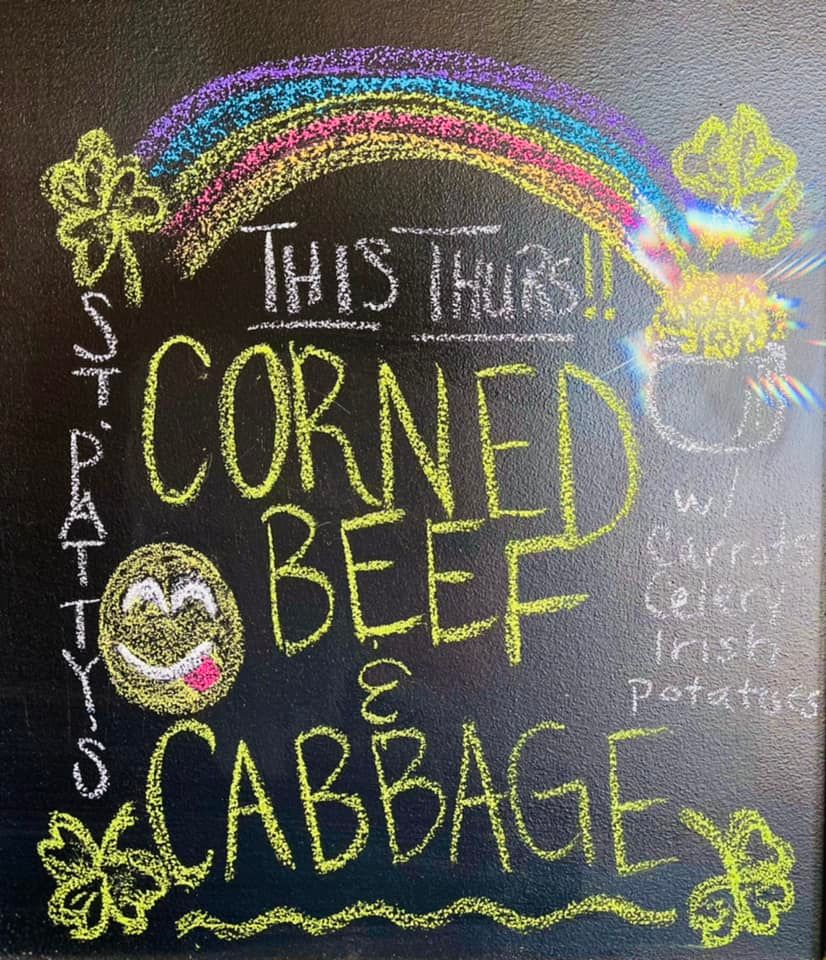 THIS THURS!!
ST. PATTY'S
CORNED
BEEF
&
CABBAGE
w/
Carrots
Celery
Irish
potatoes